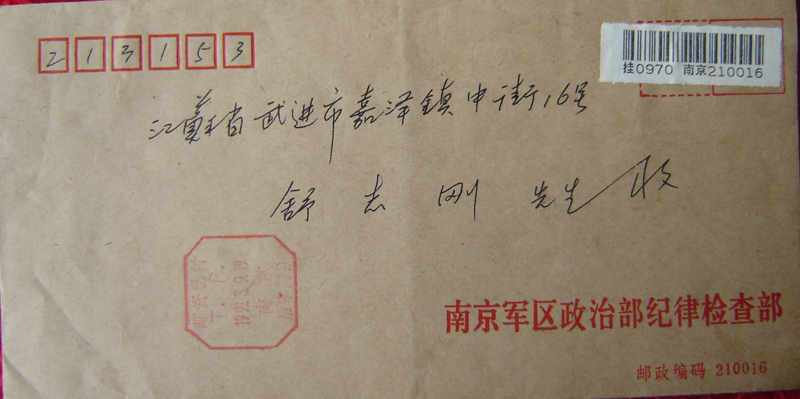 213153
挂0970 南京210016
江蘇省武进市嘉泽镇中街16号
舒志刚 先生收
邮资已付
T. P.
南京
南京军区政治部纪律检查部
邮政编码 210016